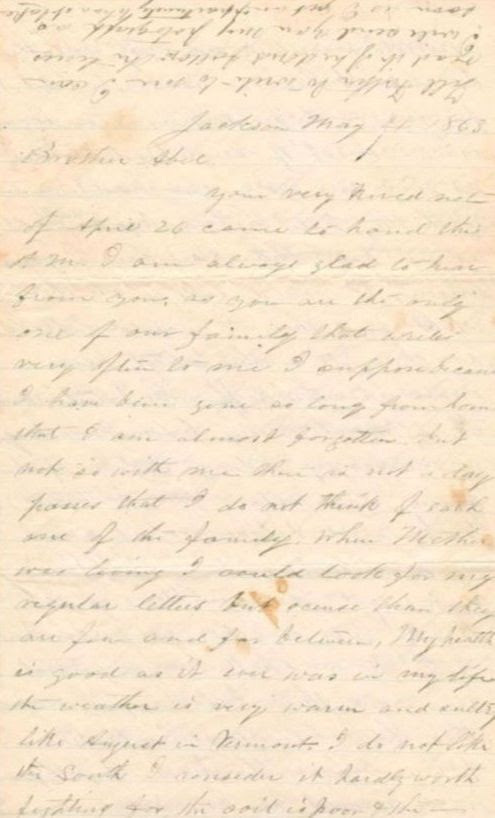 Jackson May 1863
Brother Abel
your very kind not
of Apr 26 came to hand this
A M. I am always glad to hear
from you, as you are the only
one of our family that writes
very often to me I suppose becaus
I have been gone so long from home
that I am almost forgotten. but
not so with me there is not a day
passes that I do not think of each
one of the family. when Mother
was living I could look for my
regular letters but since than they
are few and far between, My health
is good as it ever was in my life
the weather is very warm and sultry
like August in Vermont I do not like
the South I consider it hardly worth
fighting for the soil is poor & the
Tell to write to me I can
I will send you my
soon as I get an opportunity